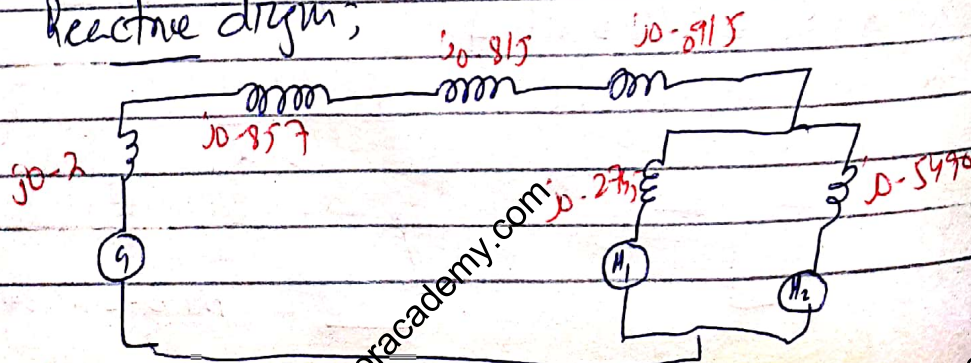 Reactive diagm;
j0-815
j0-0915
j0-857
j0-2
j0-275
j0-5490
G
M1
M2
pracademy.com